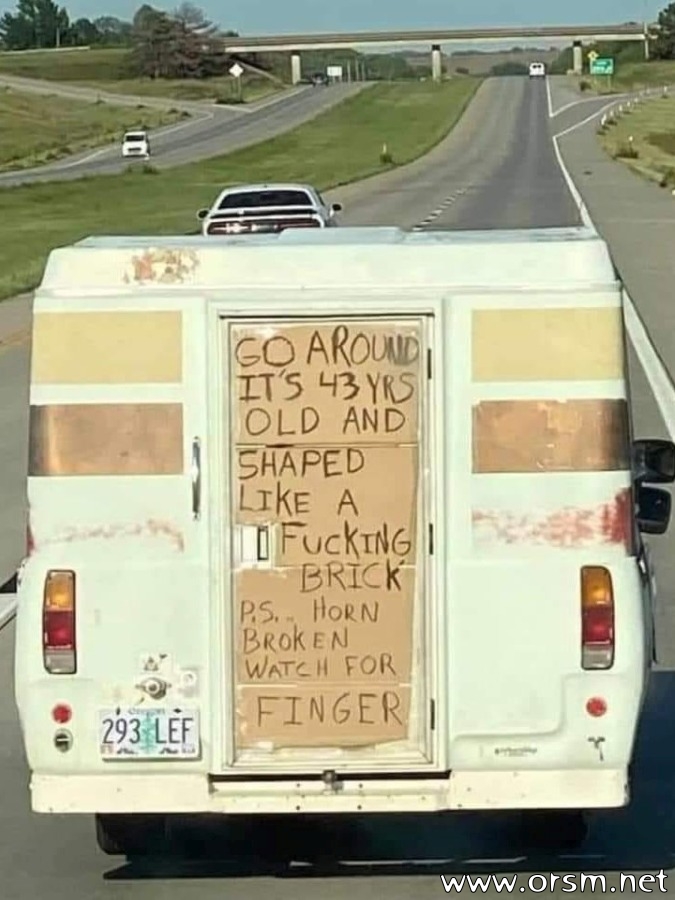 GO AROUND
IT'S 43 YRS
OLD AND
SHAPED
LIKE A
FUCKING
BRICK
P.S.. HORN
BROKEN
WATCH FOR
FINGER
Oregon
293 LEF
www.orsm.net